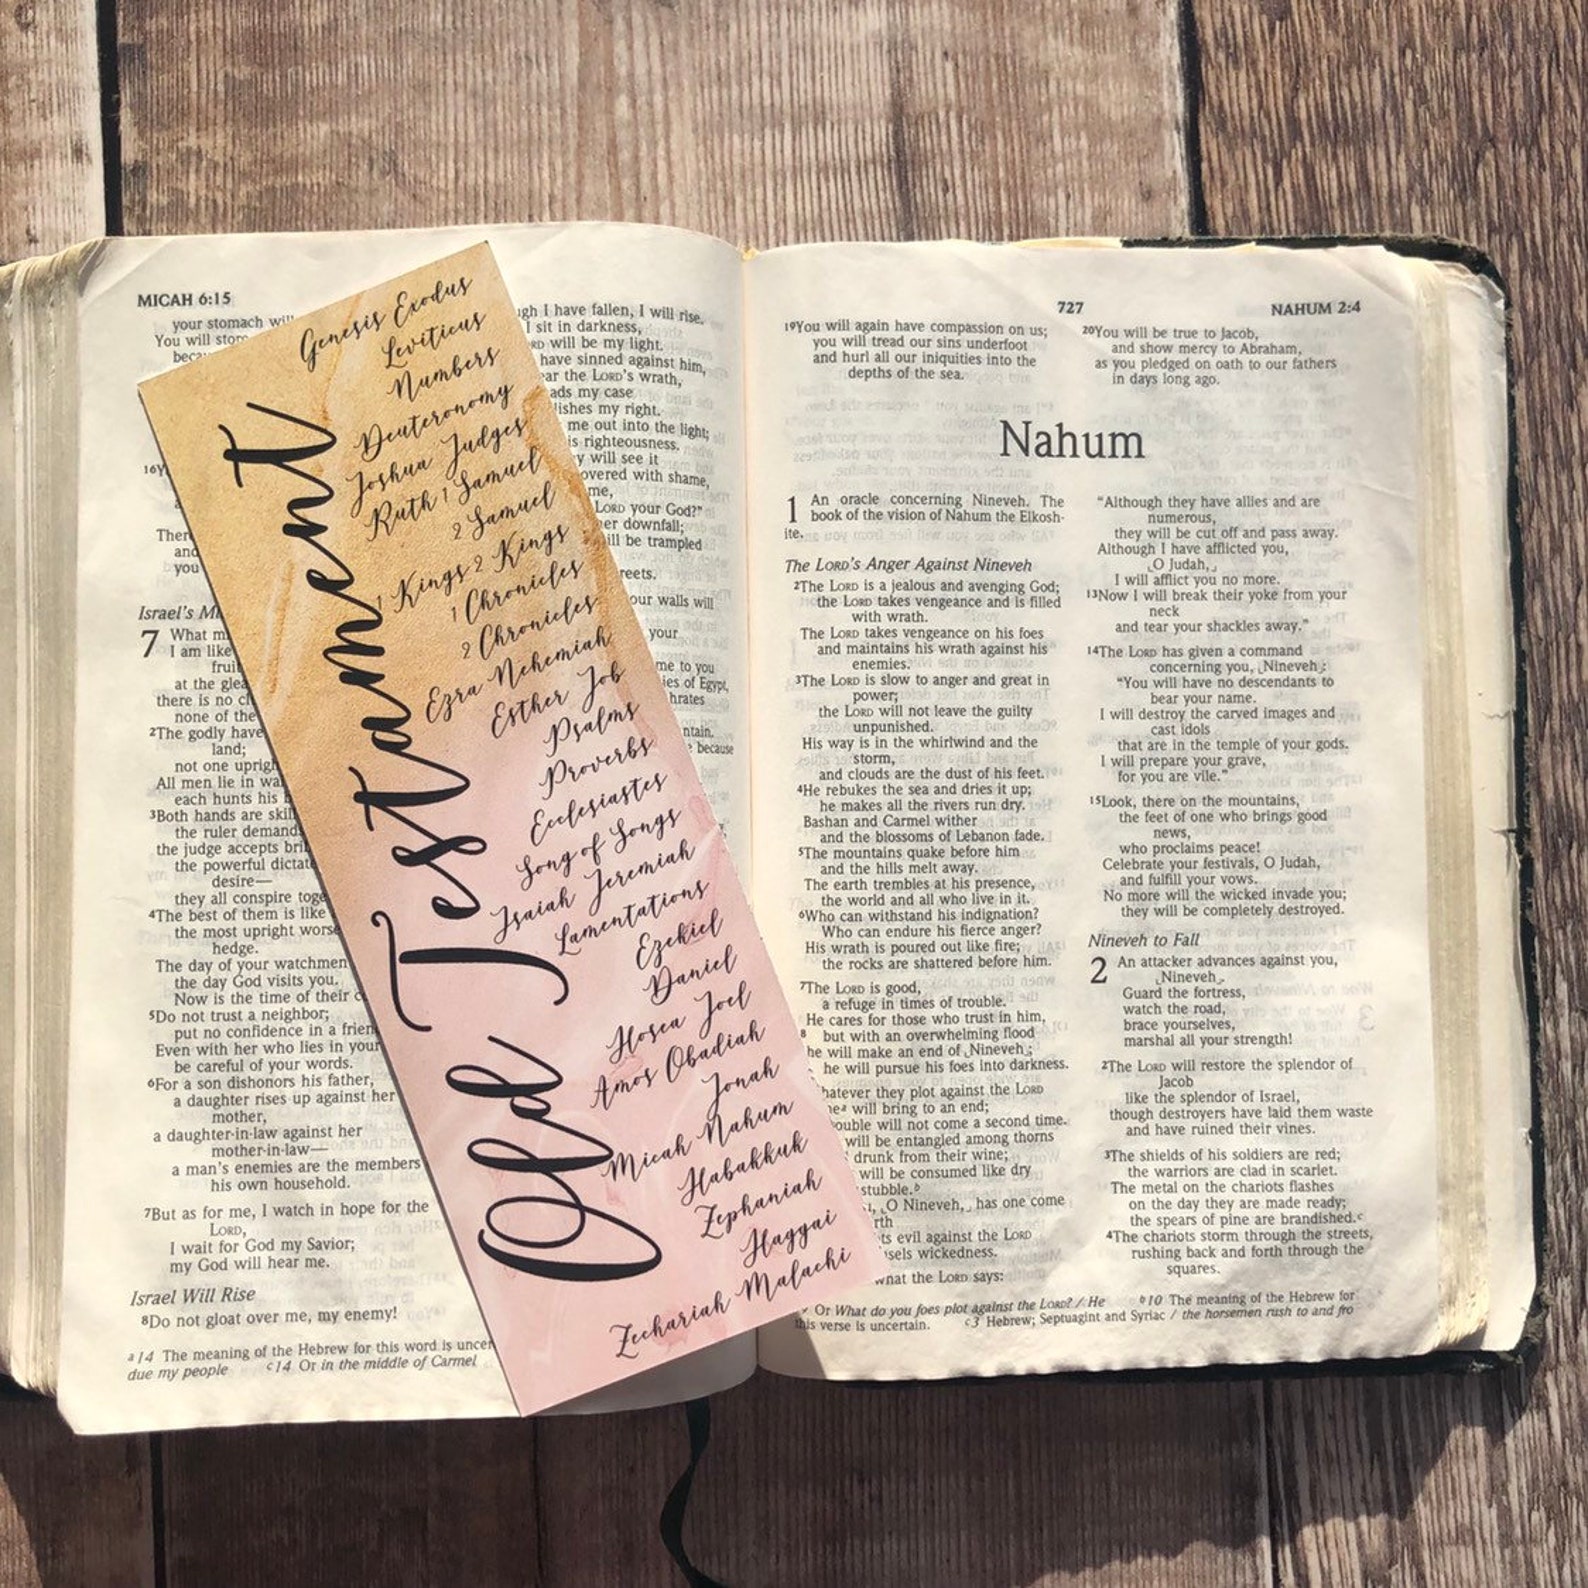 MICAH 6:15
your stomach
You will
Israel's
7 What
I am like
at the
there is no
none of the
2The godly have
land;
not one
All men lie in
each hunts his
3Both hands are
the ruler
the judge accepts
the powerful
desire—
they all conspire
4The best of them is like
the most upright
hedge.
The day of your watchmen
the day God visits you.
Now is the time of their
5Do not trust a neighbor;
put no confidence in a
Even with her who lies in your
be careful of your words.
6For a son dishonors his father,
a daughter rises up against her
mother,
a daughter-in-law against her
mother-in-law—
a man's enemies are the members
his own household.
7But as for me, I watch in hope for the
LORD,
I wait for God my Savior;
my God will hear me.
Israel Will Rise
8Do not gloat over me, my enemy!
a14 The meaning of the Hebrew for this word is
due my people c14 Or in the middle of Carmel
I have fallen, I will rise.
I sit in darkness,
will be my light.
have sinned against him,
the LORD's wrath,
my case
my right.
me out into the light;
righteousness.
will see it
with shame,
LORD your God?"
downfall;
be trampled
our walls will
your
me to you
of Egypt,
because
Old Testament
Genesis Exodus
Leviticus
Numbers
Deuteronomy
Joshua Judges
Ruth 1 Samuel
2 Samuel
1 Kings 2 Kings
1 Chronicles
2 Chronicles
Ezra Nehemiah
Esther Job
Psalms
Proverbs
Ecclesiastes
Song of Songs
Isaiah Jeremiah
Lamentations
Ezekiel
Daniel
Hosea Joel
Amos Obadiah
Jonah
Micah Nahum
Habakkuk
Zephaniah
Haggai
Zechariah Malachi
727
NAHUM 2:4
19You will again have compassion on us;
you will tread our sins underfoot
and hurl all our iniquities into the
depths of the sea.
20You will be true to Jacob,
and show mercy to Abraham,
as you pledged on oath to our fathers
in days long ago.
Nahum
1 An oracle concerning Nineveh. The
book of the vision of Nahum the Elkosh-
ite.
The LORD's Anger Against Nineveh
2The LORD is a jealous and avenging God;
the LORD takes vengeance and is filled
with wrath.
The LORD takes vengeance on his foes
and maintains his wrath against his
enemies.
3The LORD is slow to anger and great in
power;
the LORD will not leave the guilty
unpunished.
His way is in the whirlwind and the
storm,
and clouds are the dust of his feet.
4He rebukes the sea and dries it up;
he makes all the rivers run dry.
Bashan and Carmel wither
and the blossoms of Lebanon fade.
5The mountains quake before him
and the hills melt away.
The earth trembles at his presence,
the world and all who live in it.
6Who can withstand his indignation?
Who can endure his fierce anger?
His wrath is poured out like fire;
the rocks are shattered before him.
7The LORD is good,
a refuge in times of trouble.
He cares for those who trust in him,
8 but with an overwhelming flood
he will make an end of ⌞Nineveh⌟;
he will pursue his foes into darkness.
they plot against the LORD
will bring to an end;
will not come a second time.
will be entangled among thorns
drunk from their wine;
will be consumed like dry
stubble.b
⌞O Nineveh,⌟ has one come
evil against the LORD
wickedness.
the LORD says:
"Although they have allies and are
numerous,
they will be cut off and pass away.
Although I have afflicted you,
⌞O Judah,⌟
I will afflict you no more.
13Now I will break their yoke from your
neck
and tear your shackles away."
14The LORD has given a command
concerning you, ⌞Nineveh⌟:
"You will have no descendants to
bear your name.
I will destroy the carved images and
cast idols
that are in the temple of your gods.
I will prepare your grave,
for you are vile."
15Look, there on the mountains,
the feet of one who brings good
news,
who proclaims peace!
Celebrate your festivals, O Judah,
and fulfill your vows.
No more will the wicked invade you;
they will be completely destroyed.
Nineveh to Fall
2 An attacker advances against you,
⌞Nineveh⌟.
Guard the fortress,
watch the road,
brace yourselves,
marshal all your strength!
2The LORD will restore the splendor of
Jacob
like the splendor of Israel,
though destroyers have laid them waste
and have ruined their vines.
3The shields of his soldiers are red;
the warriors are clad in scarlet.
The metal on the chariots flashes
on the day they are made ready;
the spears of pine are brandished.c
4The chariots storm through the streets,
rushing back and forth through the
squares.
Or What do you foes plot against the LORD? / He b10 The meaning of the Hebrew for
this verse is uncertain. c3 Hebrew; Septuagint and Syriac / the horsemen rush to and fro